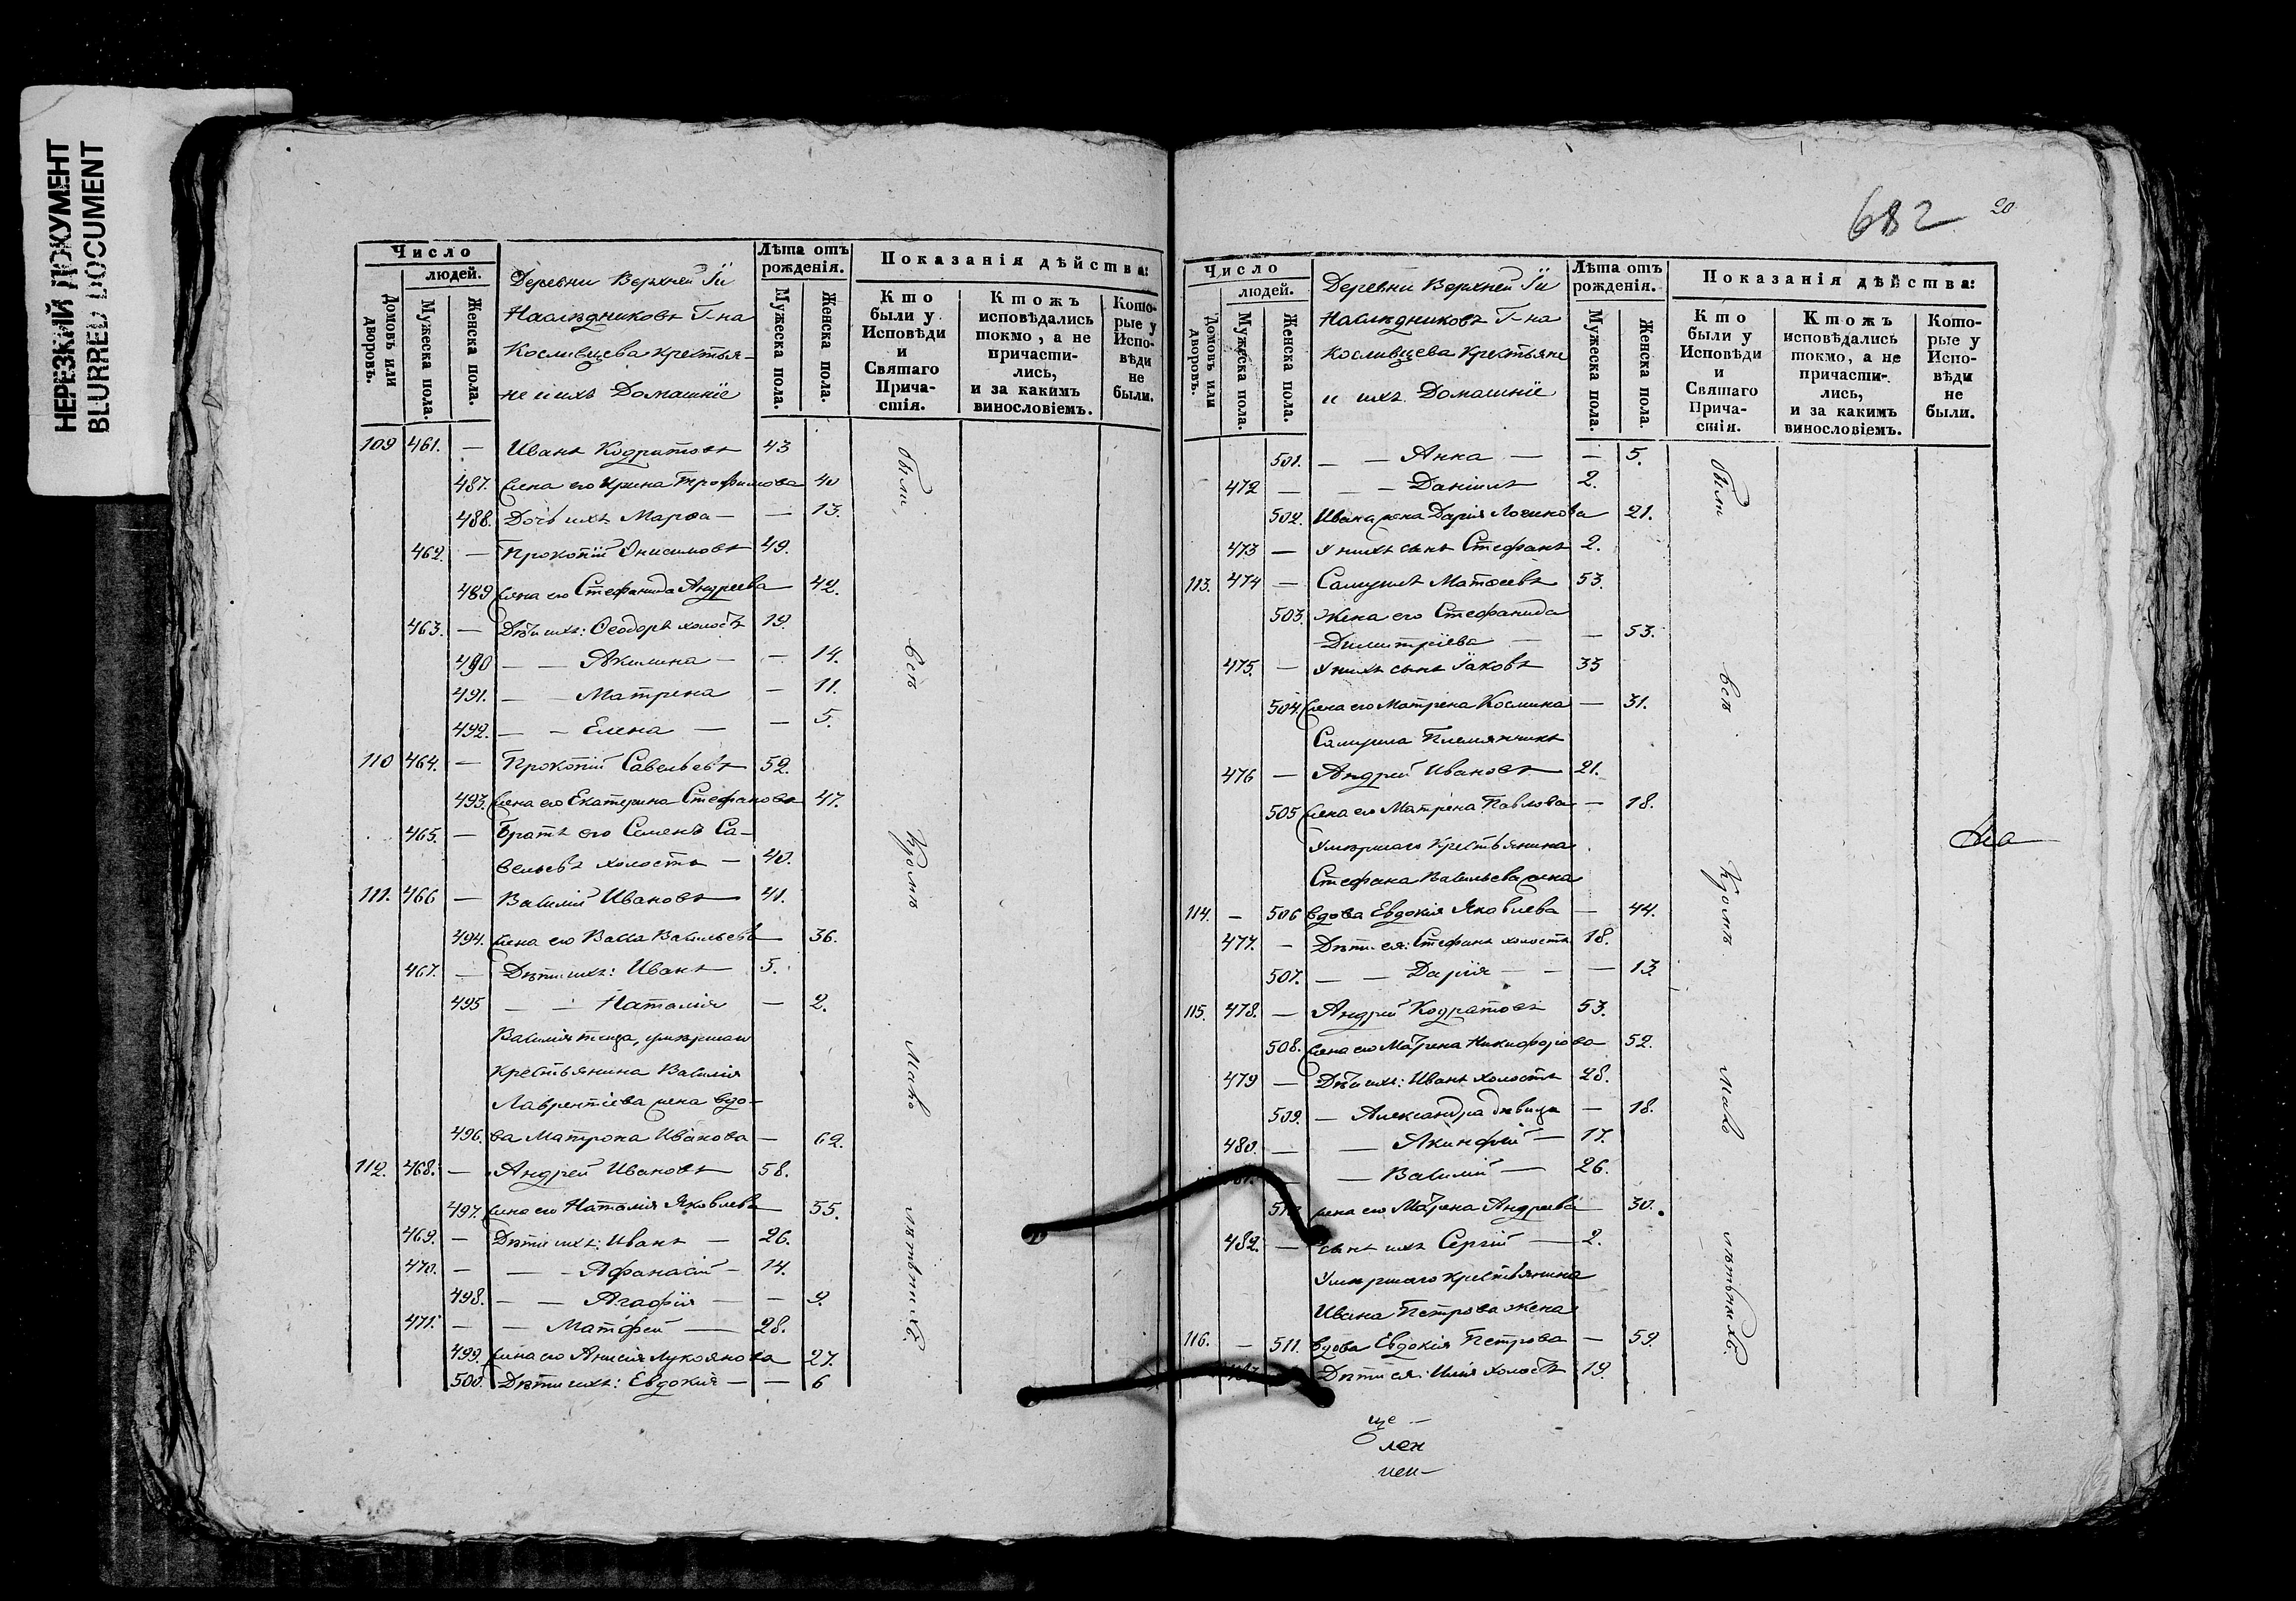 НЕРЕЗКИЙ ДОКУМЕНТ
BLURRED DOCUMENT
Число
людей.
Домовъ или дворовъ.
Мужеска пола.
Женска пола.
Деревни Верхней Ги
Наслѣдниковъ Г-на
Косливцева крестья-
не и ихъ Домашніе
Лѣта отъ рожденія.
Мужеска пола.
Женска пола.
Показанія дѣйства:
Кто были у Исповѣди и Святаго Прича-стія.
Ктожъ исповѣдались токмо, а не причасти-лись, и за какимъ винословіемъ.
Кото-рые у Испо-вѣди не были.
109 461. — Иванъ Кодратовъ 43
487. Жена его Ирина Трофимова 40
488. Дочь ихъ Марѳа — — 13.
462. — Прокопій Онисимовъ 49.
489 Жена его Стефанида Андреева 42.
463. — Дѣти ихъ: Ѳеодоръ холостъ 19.
490 — — Акилина — — 14.
491. — — Матрена — 11.
492. — — Елена — — 5.
110 464. — Прокопій Савельевъ 52.
493. Жена его Екатерина Стефанова 47.
465. — Братъ его Семенъ Са-
вельевъ холостъ — 40.
111. 466 — Василій Ивановъ 41.
494. Жена его Васса Васильева 36.
467. — Дѣти ихъ: Иванъ 5.
495 — — Наталія — 2.
Василія теща, умершаго
крестьянина Василія
Лаврентіева жена вдо-
496. ва Матрона Иванова — 62.
112. 468. — Андрей Ивановъ 58.
497. Жена его Наталія Яковлева 55.
469. — Дѣти ихъ: Иванъ — 26.
470. — — Афанасій — 14.
498. — — Агафія — — 9.
471. — — Матфей — 28.
499. Жена его Анисія Лукоянова 27.
500. Дѣти ихъ: Евдокія — — 6
были
всѣ
Кромѣ
Мало
лѣтнихъ.
682
20
Число
людей.
Домовъ или дворовъ.
Мужеска пола.
Женска пола.
Деревни Верхней Ги
Наслѣдниковъ Г-на
Косливцева Крестьяне
и ихъ Домашніе
Лѣта отъ рожденія.
Мужеска пола.
Женска пола.
Показанія дѣйства:
Кто были у Исповѣди и Святаго Прича-стія.
Ктожъ исповѣдались токмо, а не причасти-лись, и за какимъ винословіемъ.
Кото-рые у Испо-вѣди не были.
501. — — Анна — — 5.
472 — — — Даніилъ 2.
502. Ивана жена Дарія Логинова 21.
473 — У нихъ сынъ Стефанъ 2.
113. 474 — Самуилъ Матѳеевъ 53.
503. Жена его Стефанида
Димитріева — — 53.
475. — У нихъ сынъ Іаковъ 33
504. Жена его Матрена Космина — 31.
Самуила Племянникъ
476 — Андрей Ивановъ 21.
505 Жена его Матрена Павлова — 18.
Умершаго Крестьянина
Стефана Васильева жена
114. — 506 вдова Евдокія Яковлева — 44.
477. — Дѣти ея: Стефанъ холостъ 18.
507. — — Дарія — — — 13.
115. 478. — Андрей Кодратовъ 53.
508. Жена его Матрена Никифорова 52.
479 — Дѣти ихъ: Иванъ холостъ 28.
509. — Александра дѣвица — 18.
480. — — Якинфій — 17.
— — Василій — 26.
жена его Матрена Андреева 30.
482. — сынъ ихъ Сергій — 2.
Умершаго крестьянина
Ивана Петрова жена
116. — 511. вдова Евдокія Петрова — 59.
Дѣти ея: Илія холостъ 19.
были
всѣ
Кромѣ
мало
лѣтнихъ.
ще —
лен